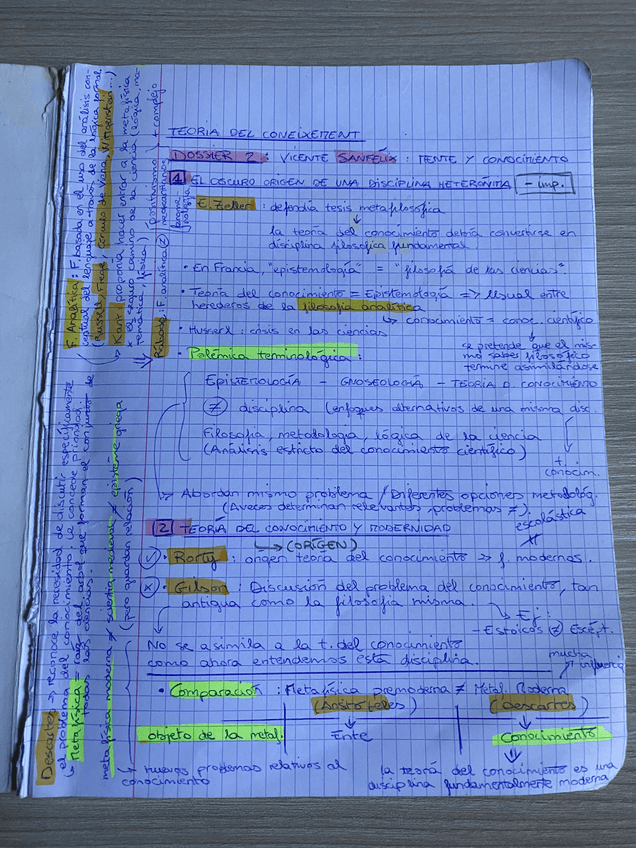 TEORIA DEL CONEIXEMENT
DOSSIER 2 : VICENTE SANFÉLIX : MENTE Y CONOCIMIENTO
1 EL OSCURO ORIGEN DE UNA DISCIPLINA HETERÓNIMA - imp.
E. Zeller : defendía tesis metafilosófica
↓
la teoría del conocimiento debría convertirse en
disciplina filosófica fundamental.
• En Francia, "epistemología" = "filosofía de las ciencias".
• Teoría del conocimiento = Epistemología => Usual entre
herederos de la filosofía analítica
↳ conocimiento = conoc. científico
↓
se pretende que el mis-
mo saber filosófico
termine asimilándose
• Husserl : crisis en las ciencias
• Polémica terminológica :
EPISTEMOLOGÍA - GNOSEOLOGÍA - TEORÍA D. CONOCIMIENTO
≠ disciplina (enfoques alternativos de una misma disc.
Filosofía, metodología, lógica de la ciencia
(Análisis estricto del conocimiento científico)
↓
+
conocim.
→ Abordan mismo problema / Diferentes opciones metodológ.
(Aveces determinan relevantes problemas ≠).
2 TEORÍA DEL CONOCIMIENTO Y MODERNIDAD
↳ (ORIGEN)
escolástica
✓ • Rorty : origen teoría del conocimiento → f modernos.
x • Gilson : Discusión del problema del conocimiento, tan
antigua como la filosofía misma.
→ Ej:
- Estoicos ≠ Escépt.
No se asimila a la t. del conocimiento
como ahora entendemos esta disciplina.
mucha
influencia
• Comparación : Metafísica premoderna ≠ Metaf. Moderna
(Aristóteles) (Descartes)
objeto de la metaf. Ente Conocimiento
→ nuevos problemas relativos al
conocimiento
↓
la teoría del conocimiento es una
disciplina fundamentalmente moderna
F. Analítica : F. basada en el uso del análisis con-
ceptual del lenguaje a través de la lógica formal
(Russell, Frege, Círculo de Viena, Wittgenstein...)
→ Kant : proponía hacer entrar a la metafísica
x el seguro camino de la ciencia (lógica, ma-
temática, física)
F. analítica ≠
+ complejo
Descartes → reconoce la necesidad de discutir específicamente
el problema del conocimiento.
↳ Metafísica = raíz del árbol que forman el conjunto de
todas las ciencias.
metafísica moderna ≠
(pero guardan relación)